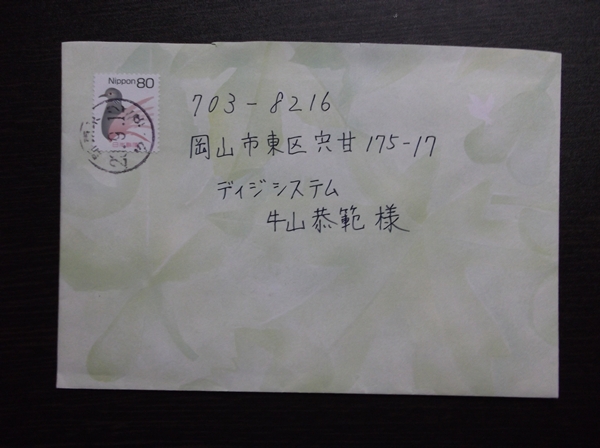 Nippon 80
703-8216
岡山市東区宍甘175-17
ディジシステム
牛山恭範様